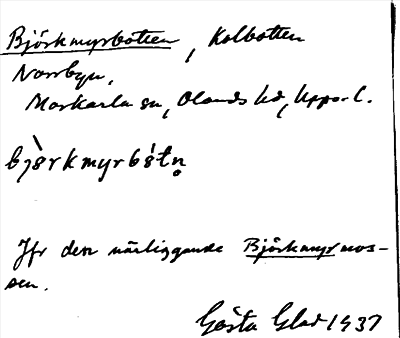 Björkmyrbotten, Kolbotten
Norrbyn,
Morkarla sn, Olands hd, Upps. l.
bjö̀rkmyrbó̀tn̥
Jfr den närliggande Björkmyrmos-
sen.
Gösta Glad 1937